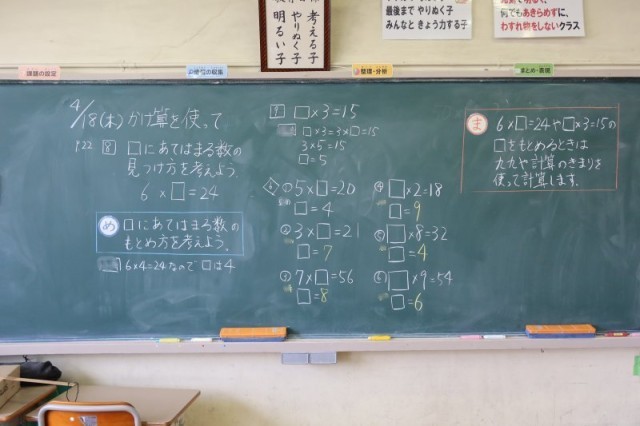 考える子
やりぬく子
明るい子
最後まで やりぬく子
みんなと きょう力する子
何でもあきらめずに、
わすれ物をしないクラス
課題の設定
整理・分析
まとめ・表現
4/18(木) かけ算を使って
P22 8 □にあてはまる数の
見つけ方を考えよう
6 × □ = 24
め □にあてはまる数の
もとめ方を考えよう。
6×4=24なので □は4
9 □×3=15
□×3=3×□=15
3×5=15
□=5
① 5×□=20
□=4
② 3×□=21
□=7
7×□=56
□=8
□×2=18
□=9
□×8=32
□=4
□×9=54
□=6
ま 6×□=24や□×3=15の
□をもとめるときは
九九や計算のきまりを
使って計算します。